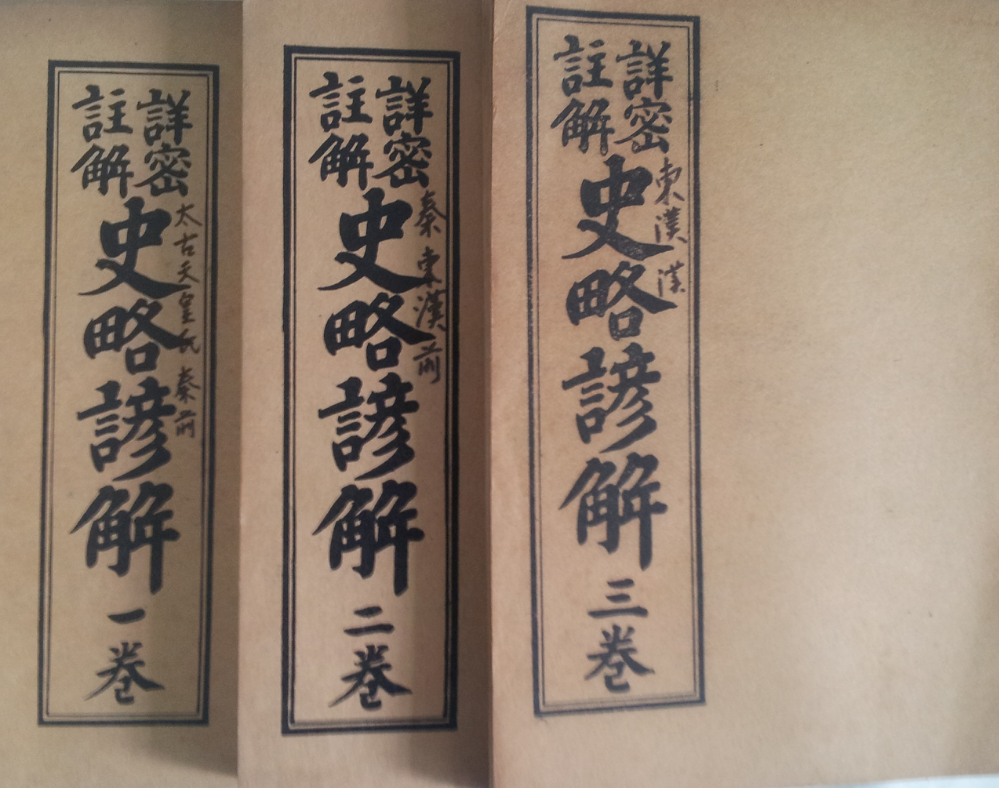 詳密
註解
史略諺解
一巻
太古天皇氏 秦前
詳密
註解
史略諺解
二巻
秦 東漢前
詳密
註解
史略諺解
三巻
東漢 漢